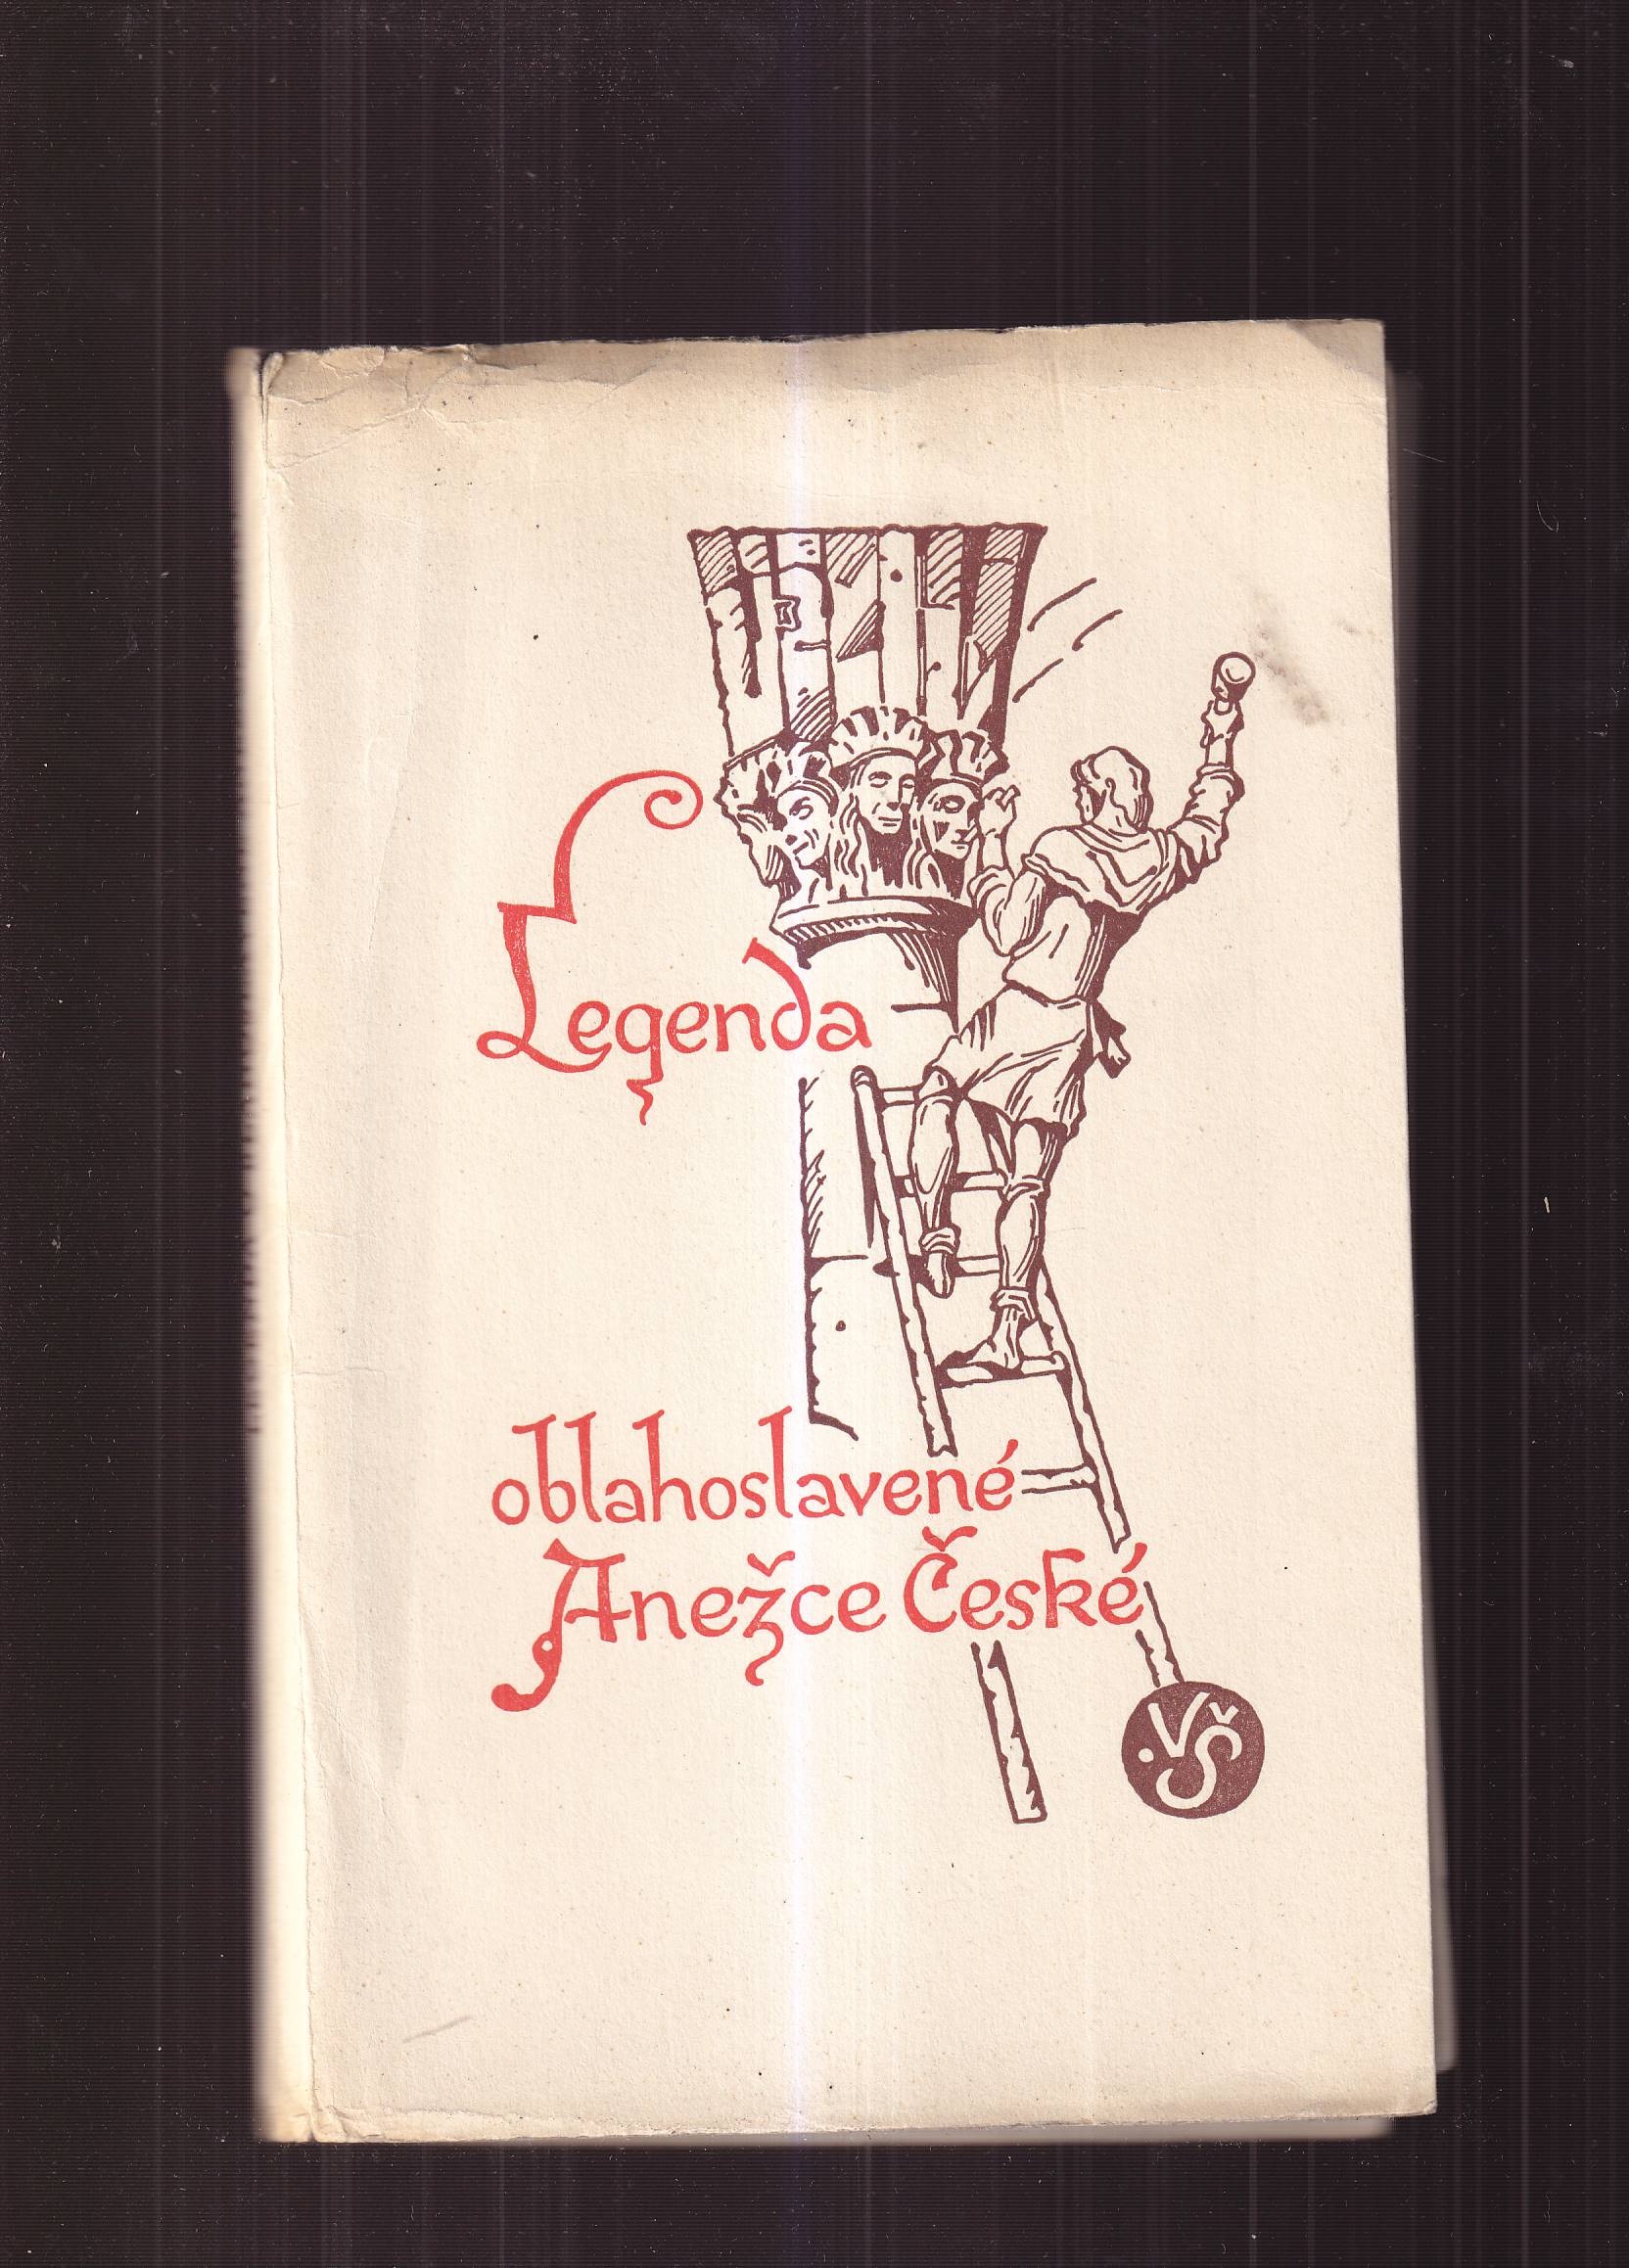 Legenda
oblahoslavené
Anežce České
VŠ